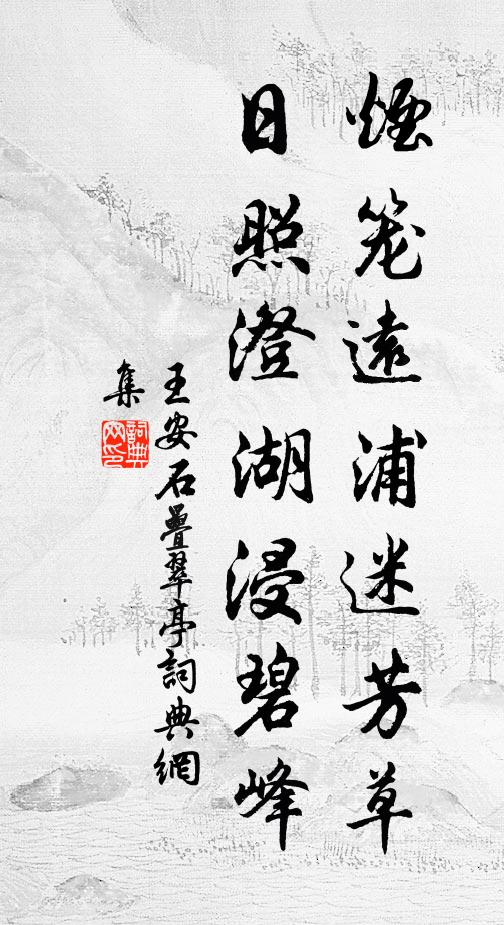 煙笼遠浦迷芳草
日照澄湖浸碧峰
王安石疊翠亭詞典網
集
詞典
网印